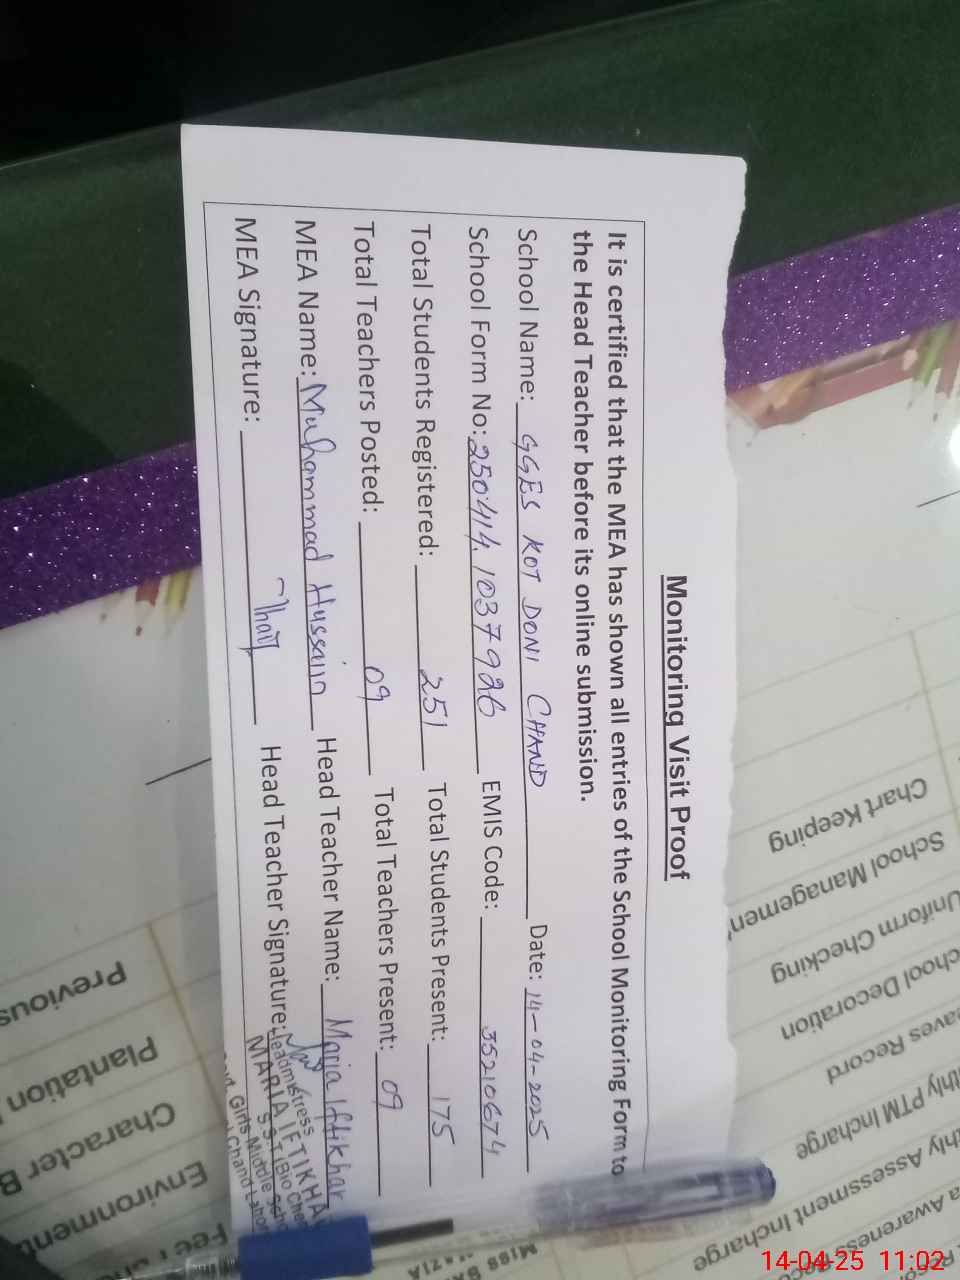 Monitoring Visit Proof
It is certified that the MEA has shown all entries of the School Monitoring Form to
the Head Teacher before its online submission.
School Name: GGES KOT DONI CHAND Date: 14-04-2025
School Form No: 250414.1037926 EMIS Code: 35210674
Total Students Registered: 251 Total Students Present: 175
Total Teachers Posted: 09 Total Teachers Present: 09
MEA Name: Muhammad Hussain Head Teacher Name: Maria Iftikhar
MEA Signature: Head Teacher Signature:
Headmistress
MARIA IFTIKHA
S.S.T (Bio Che
Girls Middle Scho
Chand Lahor
Chart Keeping
School Managemen
Uniform Checking
chool Decoration
eaves Record
thly PTM Incharge
hly Assessment Incharge
a Awareness
Previous
Plantation
Character B
Environment
Fee
MISS
14-04-25 11:02